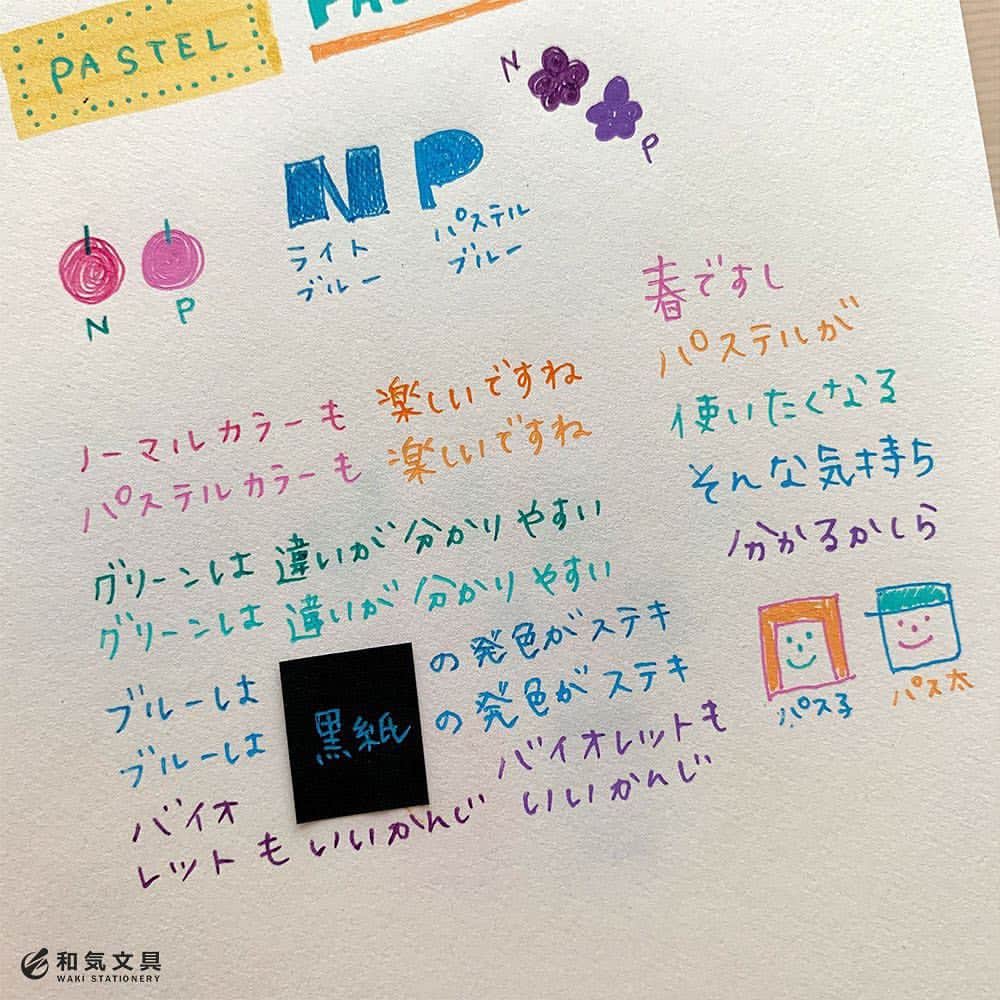 PASTEL
PAS
N
P
N P
ライト
ブルー
パステル
ブルー
N
P
ノーマルカラーも 楽しいですね
パステルカラーも 楽しいですね
グリーンは 違いが 分かりやすい
グリーンは 違いが 分かりやすい
ブルーは
ブルーは
黒紙
の発色がステキ
の発色がステキ
バイオ
レットも いいかんじ
バイオレットも
いいかんじ
春ですし
パステルが
使いたくなる
そんな気持ち
分かるかしら
パス子
パス太
和気文具
WAKI STATIONERY